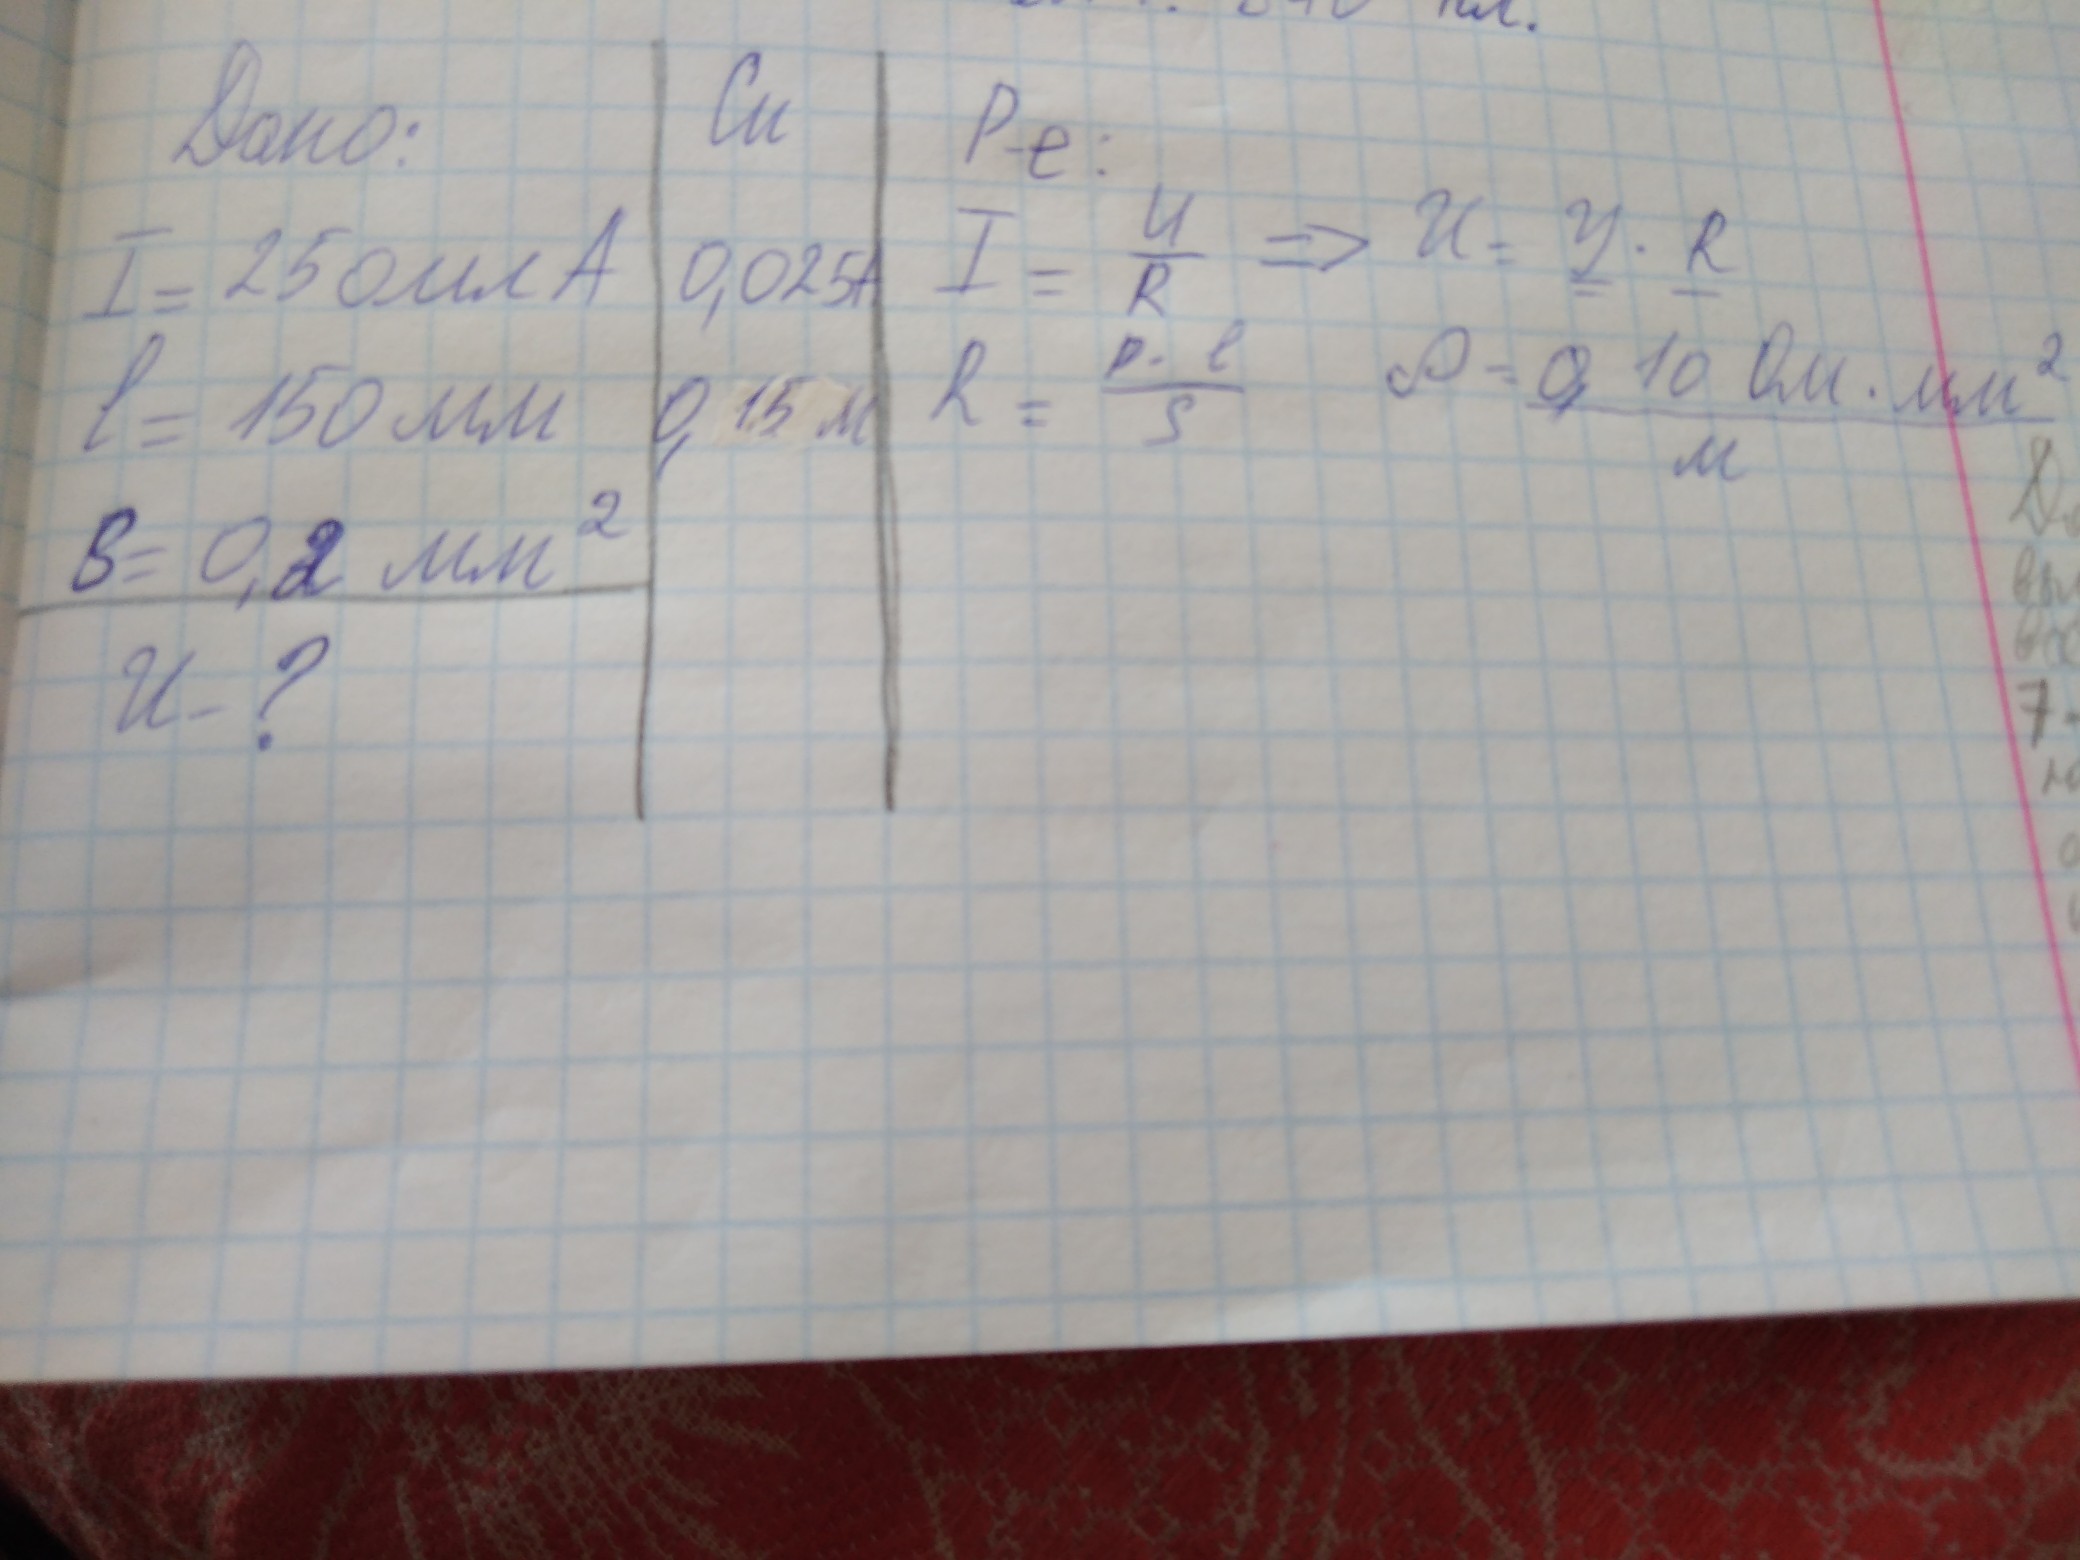 Дано:
I = 250 млА
l = 150 мм
S = 0,2 мм²
U - ?
Си
0,025А
0,15 м
Р-е:
I = U/R => U = I · R
R = ρ · l / S   ρ = 0,10 Ом · мм² / м